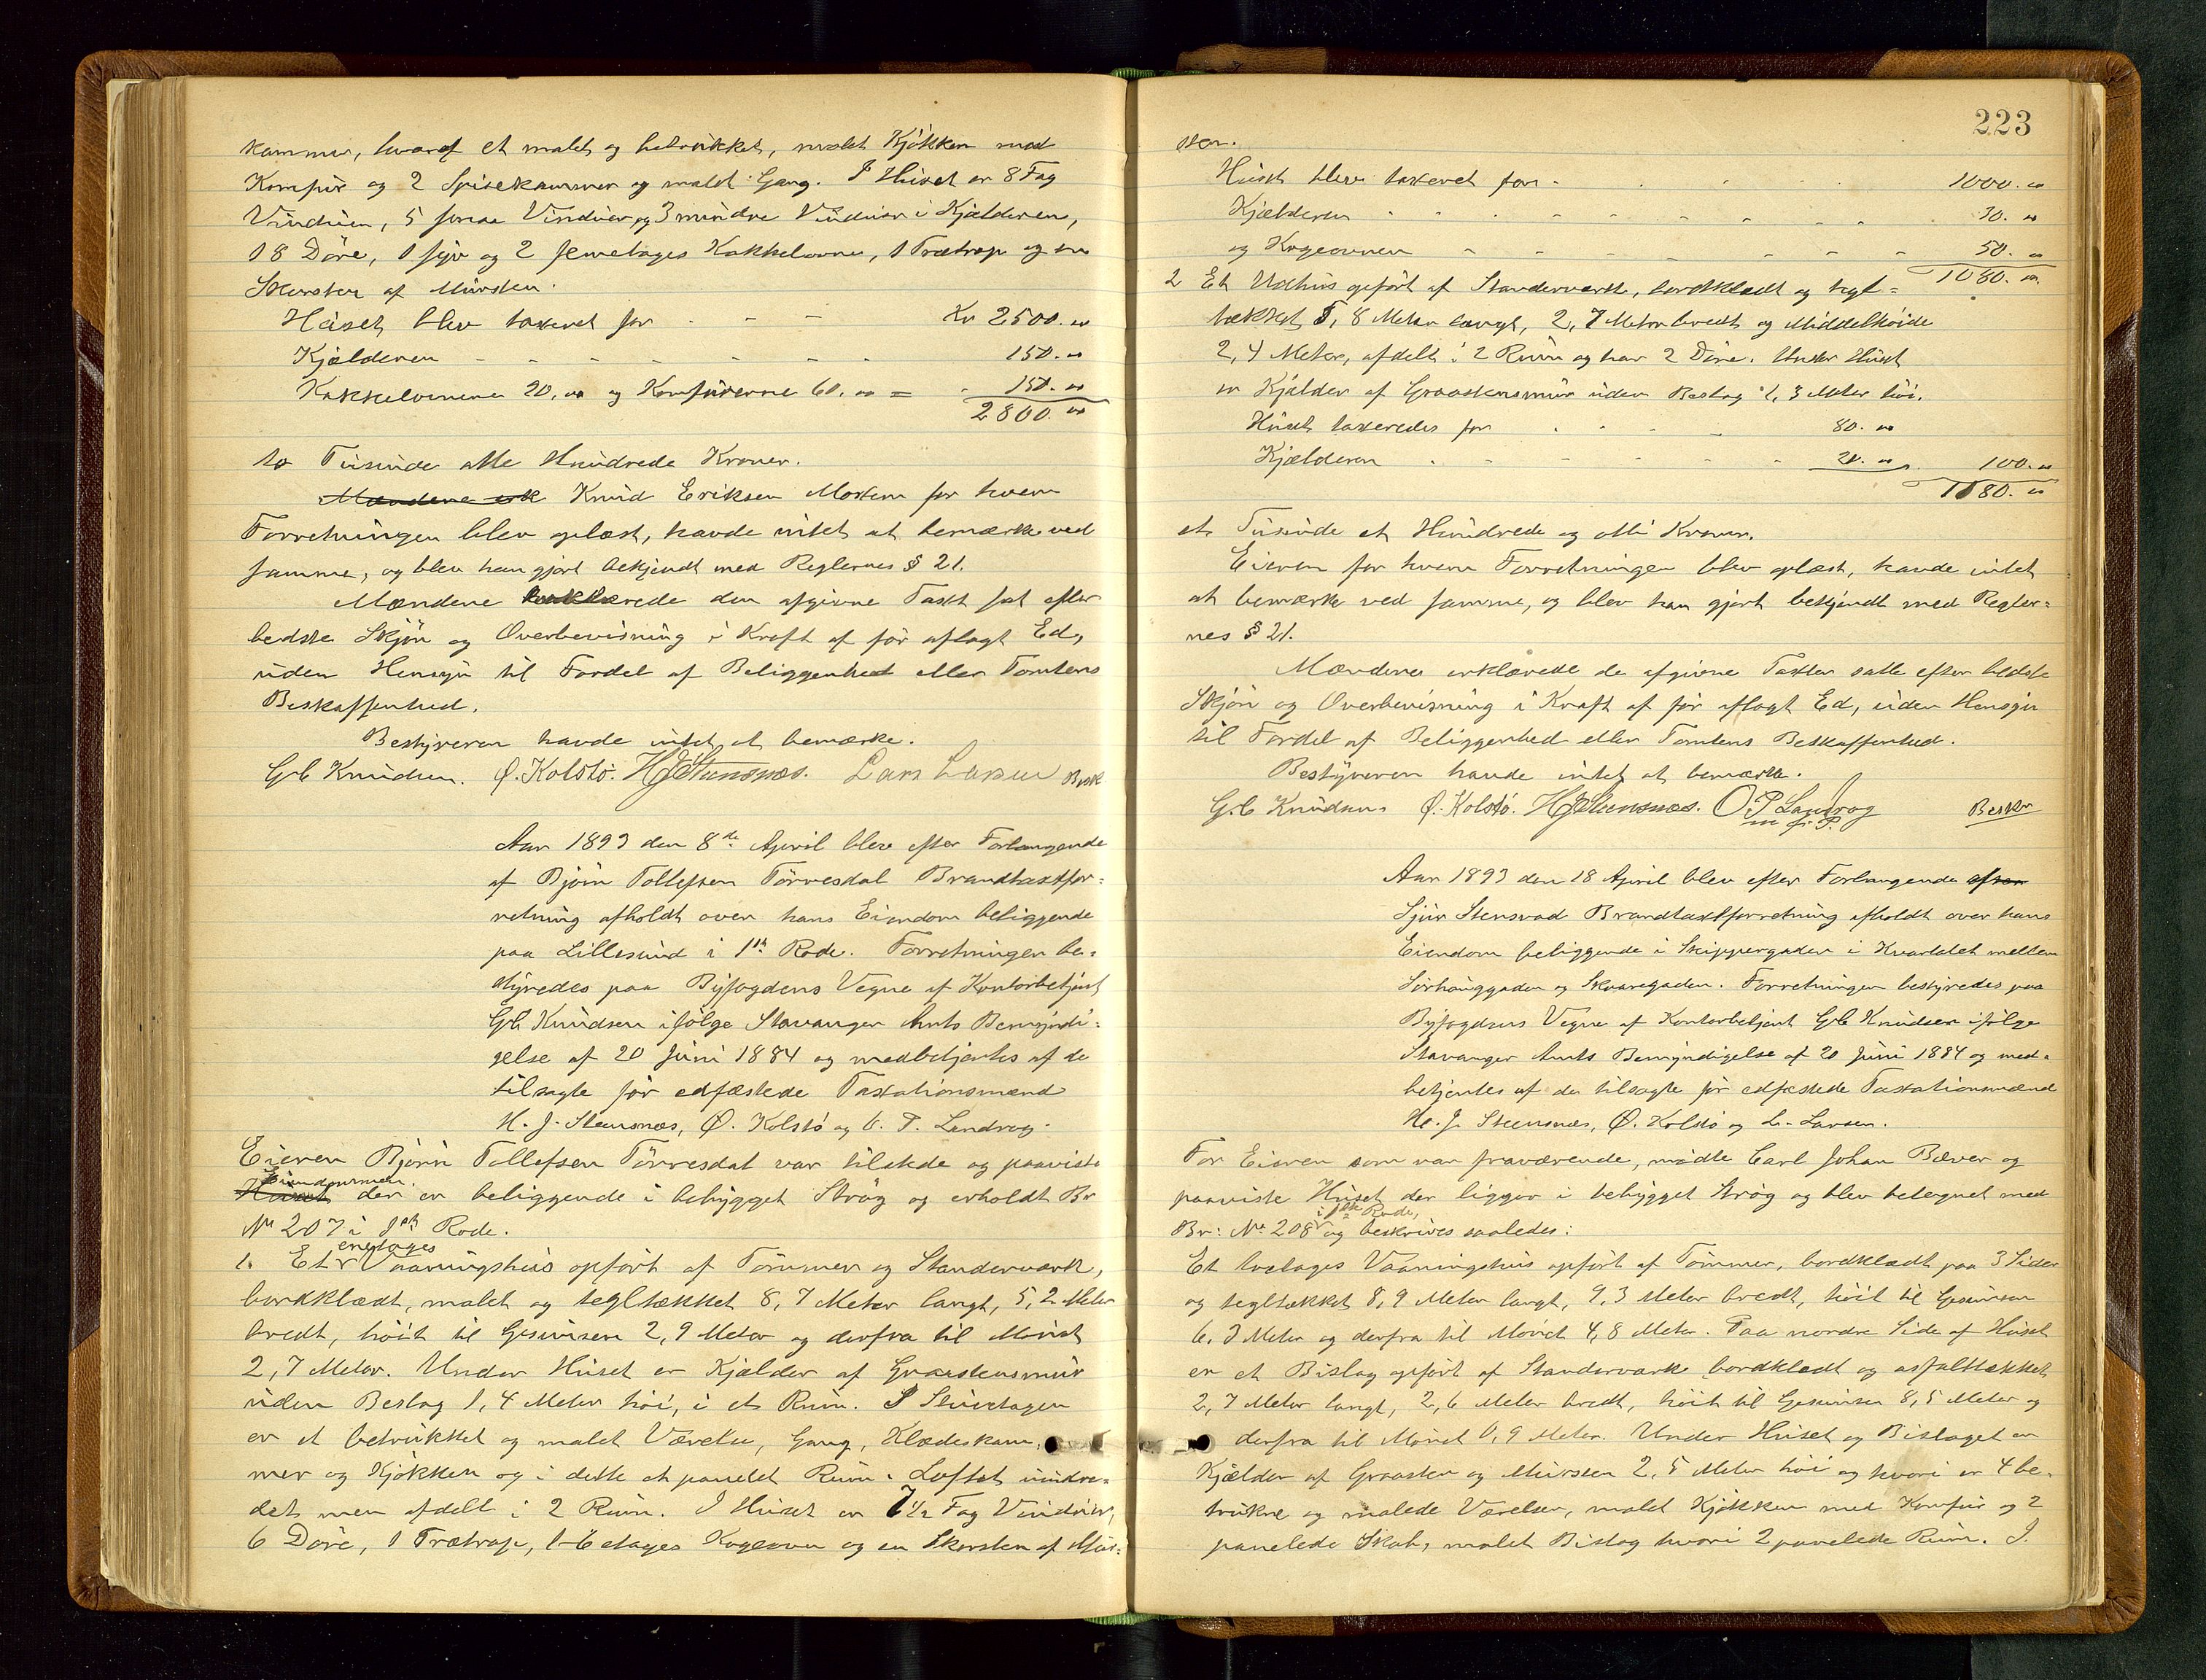 kammer, hvoraf et malet og betrukket, malet Kjøkken med
Komfur og 2 Spisekammer og malet Gang. I Huset er 8 Fag
Vinduer, 5 smaa Vinduer og 3 mindre Vinduer i Kjælderen,
18 Døre, 1 syv og 2 femetages Kakkelovne, 1 Trætrap og en
Skorsten af Mursten.
Huset blev taxeret for - - - Kr 2500. 00
Kjælderen - - - - - - - 150. 00
Kakkelovnene 90. 00 og Komfurerne 60. 00 = - 150. 00
2800. 00
to Tusinde otte Hundrede Kroner.
Mændene erk Knud Eriksen Mostem for hvem
Forretningen blev oplæst, havde intet at bemærke ved
samme, og blev han gjort bekjendt med Reglernes § 21.
Mændene erklærede den afgivne Taxt sat efter
bedste Skjøn og Overbevisning i Kraft af før aflagt Ed,
uden Hensyn til Fordel af Beliggenhed eller Tomtens
Beskaffenhed.
Bestyreren havde intet at bemærke.
G.C Knudsen. Ø. Kolstø. H J Steensnæs. Lars Larsen Besk
Aar 1893 den 8de April blev efter Forlangende
af Bjørn Tollefsen Tørresdal Brandtaxtfor=
retning afholdt over hans Eiendom beliggende
paa Lillesund i 1ste Rode. Forretningen be=
styredes paa Byfogdens Vegne af Kontorbetjent
G.C Knudsen ifølge Stavanger Amts Bemyndi=
gelse af 20 Juni 1884 og medbetjentes af de
tilsagte før edfæstede Taxationsmænd
H. J. Steensnæs, Ø. Kolstø og O. P. Landrog.
Eieren Bjørn Tollefsen Tørresdal var tilstede og paaviste
Eiendommen.
Huset der er beliggende i bebygget Strøg og erholdt Br
No 207 i 1ste Rode.
enetages
1. Et Vaaningshus opført af Tømmer og Standerværk,
bordklædt, malet og tegltækket 8,7 Meter langt, 5,2 Meter
bredt, høit til Gesimsen 2,9 Meter og derfra til Mønet
2,7 Meter. Under Huset er Kjælder af Graastensmur
uden Beslag 1,4 Meter høi, i et Rum. I Stuetagen
er et betrukket og malet Værelse, Gang, Klædeskam=
mer og Kjøkken og i dette et panelet Rum. Loftet uindre=
det men afdelt i 2 Rum. I Huset er 7 1/2 Fag Vinduer,
6 Døre, 1 Trætrap, 1-6 etages Kogeovn og en Skorsten af Mur=
223
sten.
Huset blev taxeret for - - - - 1000. 00
Kjælderen - - - - - - - - 30. 00
og Kogeovnen - - - - - - - 50. 00
1080. 00.
2 Et Udhus opført af Standerværk, bordklædt og tegl=
tækket 5,8 Meter langt, 2,7 Meter bredt og Middelhøide
2,4 Meter, afdelt i 2 Rum og har 2 Døre. Under Huset
er Kjælder af Graastensmur uden Beslag 1,3 Meter høi.
Huset taxeredes for - - - - 80. 00
Kjælderen - - - - - 20. 00 100. 00
1180. 00
et Tusinde et Hundrede og otti Kroner.
Eieren for hvem Forretningen blev oplæst, havde intet
at bemærke ved samme, og blev han gjort bekjendt med Regler=
nes § 21.
Mændene erklærede de afgivne Taxter satte efter bedste
Skjøn og Overbevisning i Kraft af før aflagt Ed, uden Hensyn
til Fordel af Beliggenhed eller Tomtens Beskaffenhed.
Bestyreren havde intet at bemærke.
G.C Knudsen Ø. Kolstø. H J Steensnæs. O. P Landrog Beskr
m. f. P.
Aar 1893 den 18 April blev efter Forlangende af
Sjur Stensvad Brandtaxtforretning afholdt over hans
Eiendom beliggende i Skippergaden i Kvartalet mellem
Sørhauggaden og Skvaregaden. Forretningen bestyredes paa
Byfogdens Vegne af Kontorbetjent G.C Knudsen ifølge
Stavanger Amts Bemyndigelse af 20 Juni 1884 og med=
betjentes af de tilsagte før edfæstede Taxationsmænd
H. J. Steensnæs, Ø. Kolstø og L. Larsen.
For Eieren som var fraværende, mødte Carl Johan Bæver og
paaviste Huset der ligger i bebygget Strøg og blev betegnet med
i Rode,
Br: No 208 og beskrives saaledes:
Et toetages Vaaningshus opført af Tømmer, bordklædt paa 3 Sider
og tegltækket 8,9 Meter langt, 9,3 Meter bredt, høit til Gesimsen
6,3 Meter og derfra til Mønet 4,8 Meter. Paa nordre Side af Huset
er et Bislag opført af Standerværk bordklædt og asfalttækket
2,7 Meter langt, 2,6 Meter bredt, høit til Gesimsen 8,5 Meter og
derfra til Mønet 0,9 Meter. Under Huset og Bislaget er
Kjælder af Graasten og Mursten 2,5 Meter høi og hvori er 4 be=
trukne og malede Værelser, malet Kjøkken med Komfur og 2
panelede Skab, malet Bislag hvori 2 panelede Rum. I